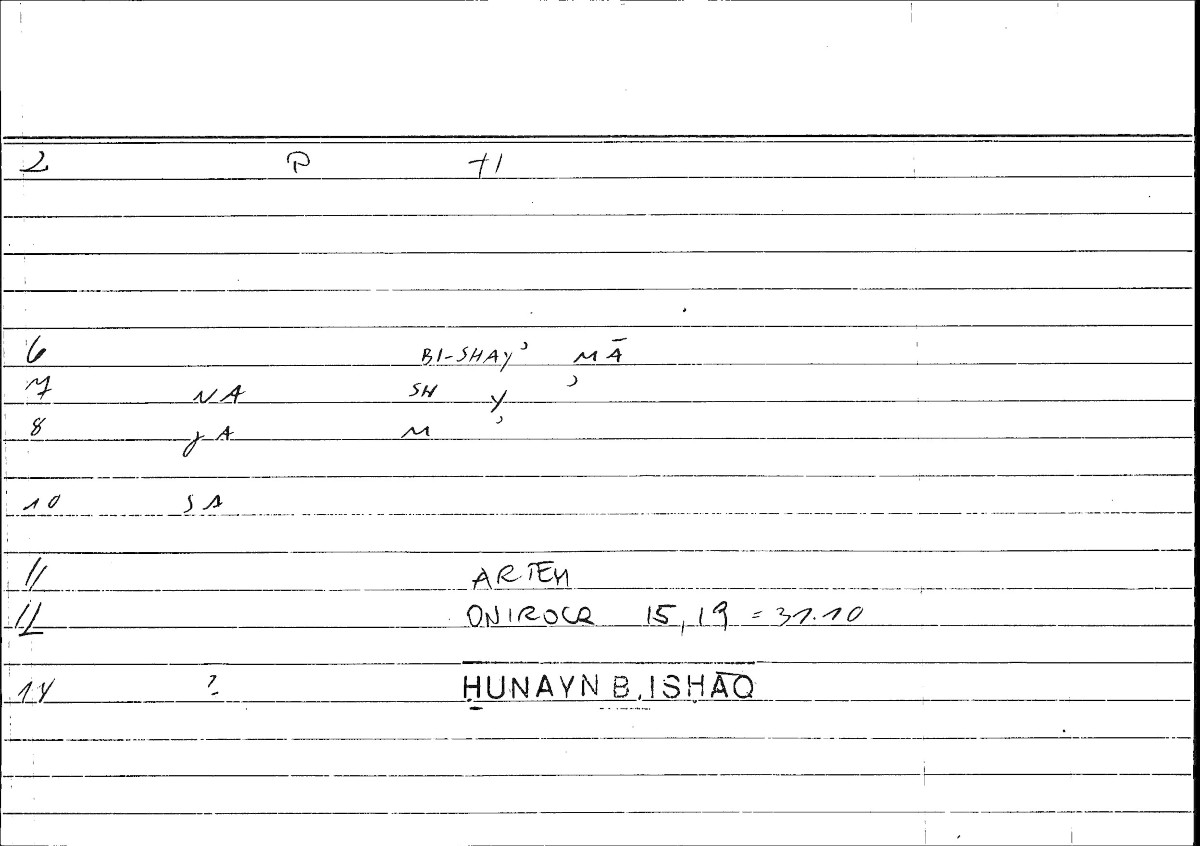 2 P +1
6 BI-SHAYʾ MĀ
7 NA SH Y ʾ
8 JA M ʾ
10 SA
11 ARTEM
12 ONIROCR 15,19 = 31.10
14 ? ḤUNAYN B. ISḤĀQ